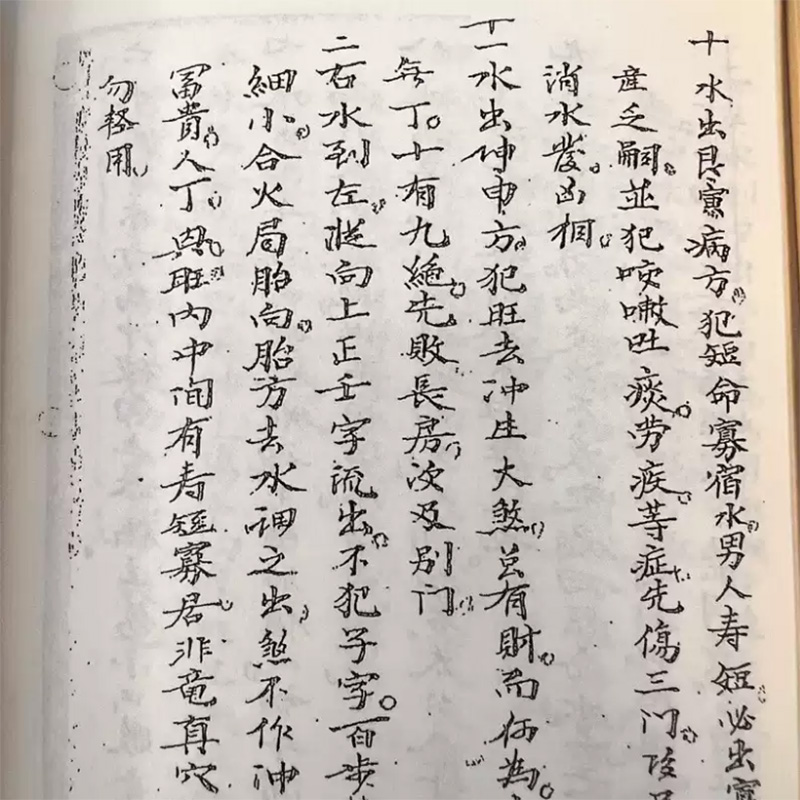 十水出艮寅病方。犯短命寡宿水。男人寿短。必出寡
产乏嗣。並犯咳嗽吐痰劳疾等症。先傷三门。
消水發凶相。
十一水出坤申方。犯旺去冲生大煞。总有財而何為。
每丁。十有九絶。先敗長房。次及别门。
二右水到左。從向上正壬字流出。不犯子字。百步
細小。合火局胎向。胎方去水。謂之出煞不作冲
冨貴。人丁興旺。内中间有寿短寡居。非竜真穴
勿輕用。